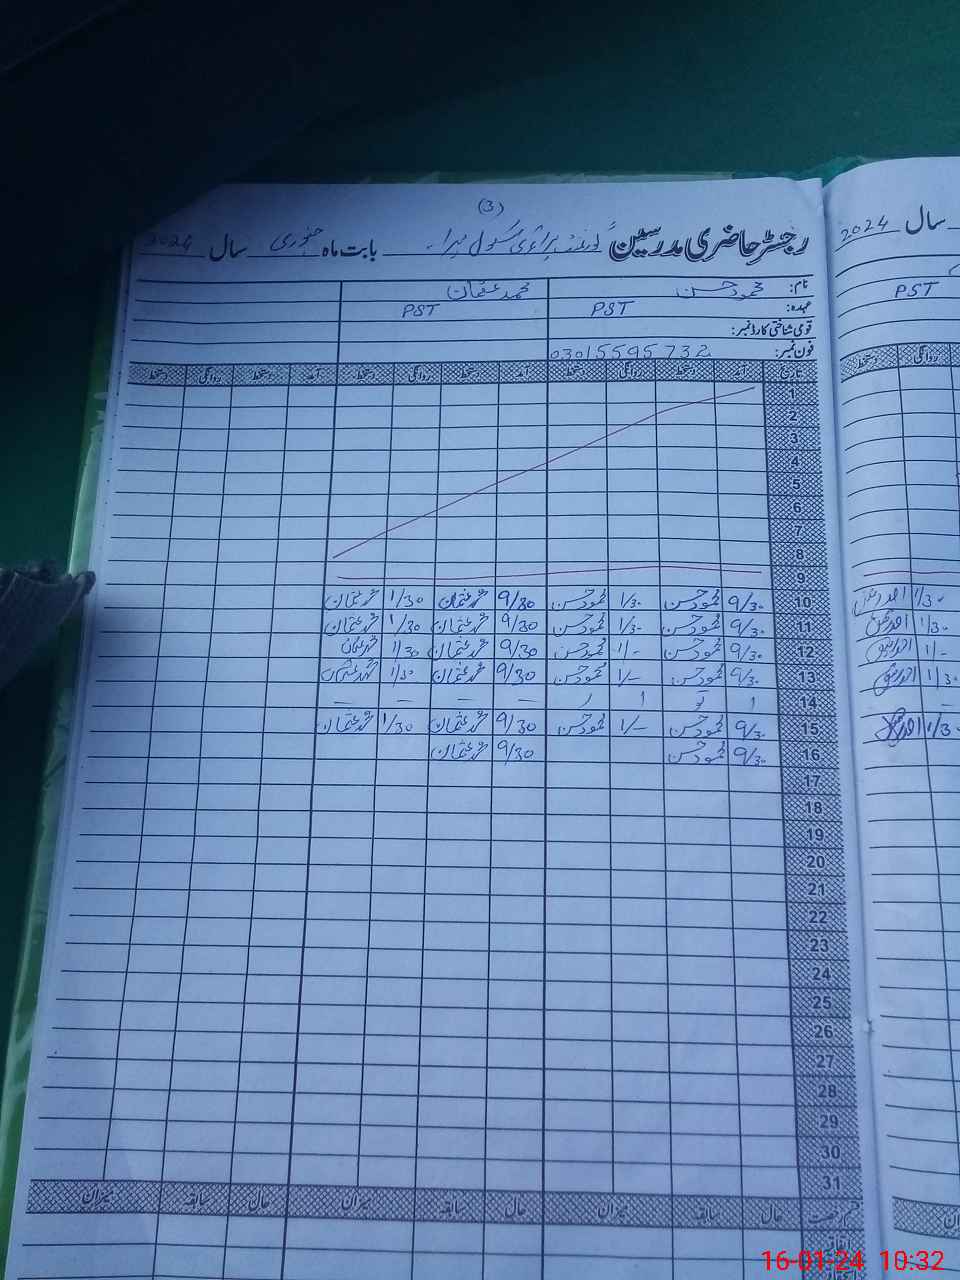 (3)
رجسٹر حاضری مدرسین گورنمنٹ پرائمری سکول بابت ماہ جنوری سال 2024
نام: محمود حسن محمد عثمان
عہدہ: PST PST
قومی شناختی کارڈ نمبر:
فون نمبر: 03015595732
تاریخ آمد دستخط روانگی دستخط آمد دستخط روانگی دستخط آمد دستخط روانگی دستخط
1
2
3
4
5
6
7
8
9
10 9/30 محمود حسن 1/30 محمود حسن 9/30 محمد عثمان 1/30 محمد عثمان
11 9/30 محمود حسن 1/30 محمود حسن 9/30 محمد عثمان 1/30 محمد عثمان
12 9/30 محمود حسن 1/- محمود حسن 9/30 محمد عثمان 1/30 محمد عثمان
13 9/30 محمود حسن 1/- محمود حسن 9/30 محمد عثمان 1/30 محمد عثمان
14 ا تو ا ر - - - -
15 9/30 محمود حسن 1/- محمود حسن 9/30 محمد عثمان 1/30 محمد عثمان
16 9/30 محمود حسن 9/30 محمد عثمان
17
18
19
20
21
22
23
24
25
26
27
28
29
30
31
قسم رخصت حال سابقہ میزان حال سابقہ میزان حال سابقہ میزان
اتفاقیہ
سال 2024
PST
روانگی دستخط
1/30
1/30
1/-
1/30
1/30
میزان
16-01-24 10:32